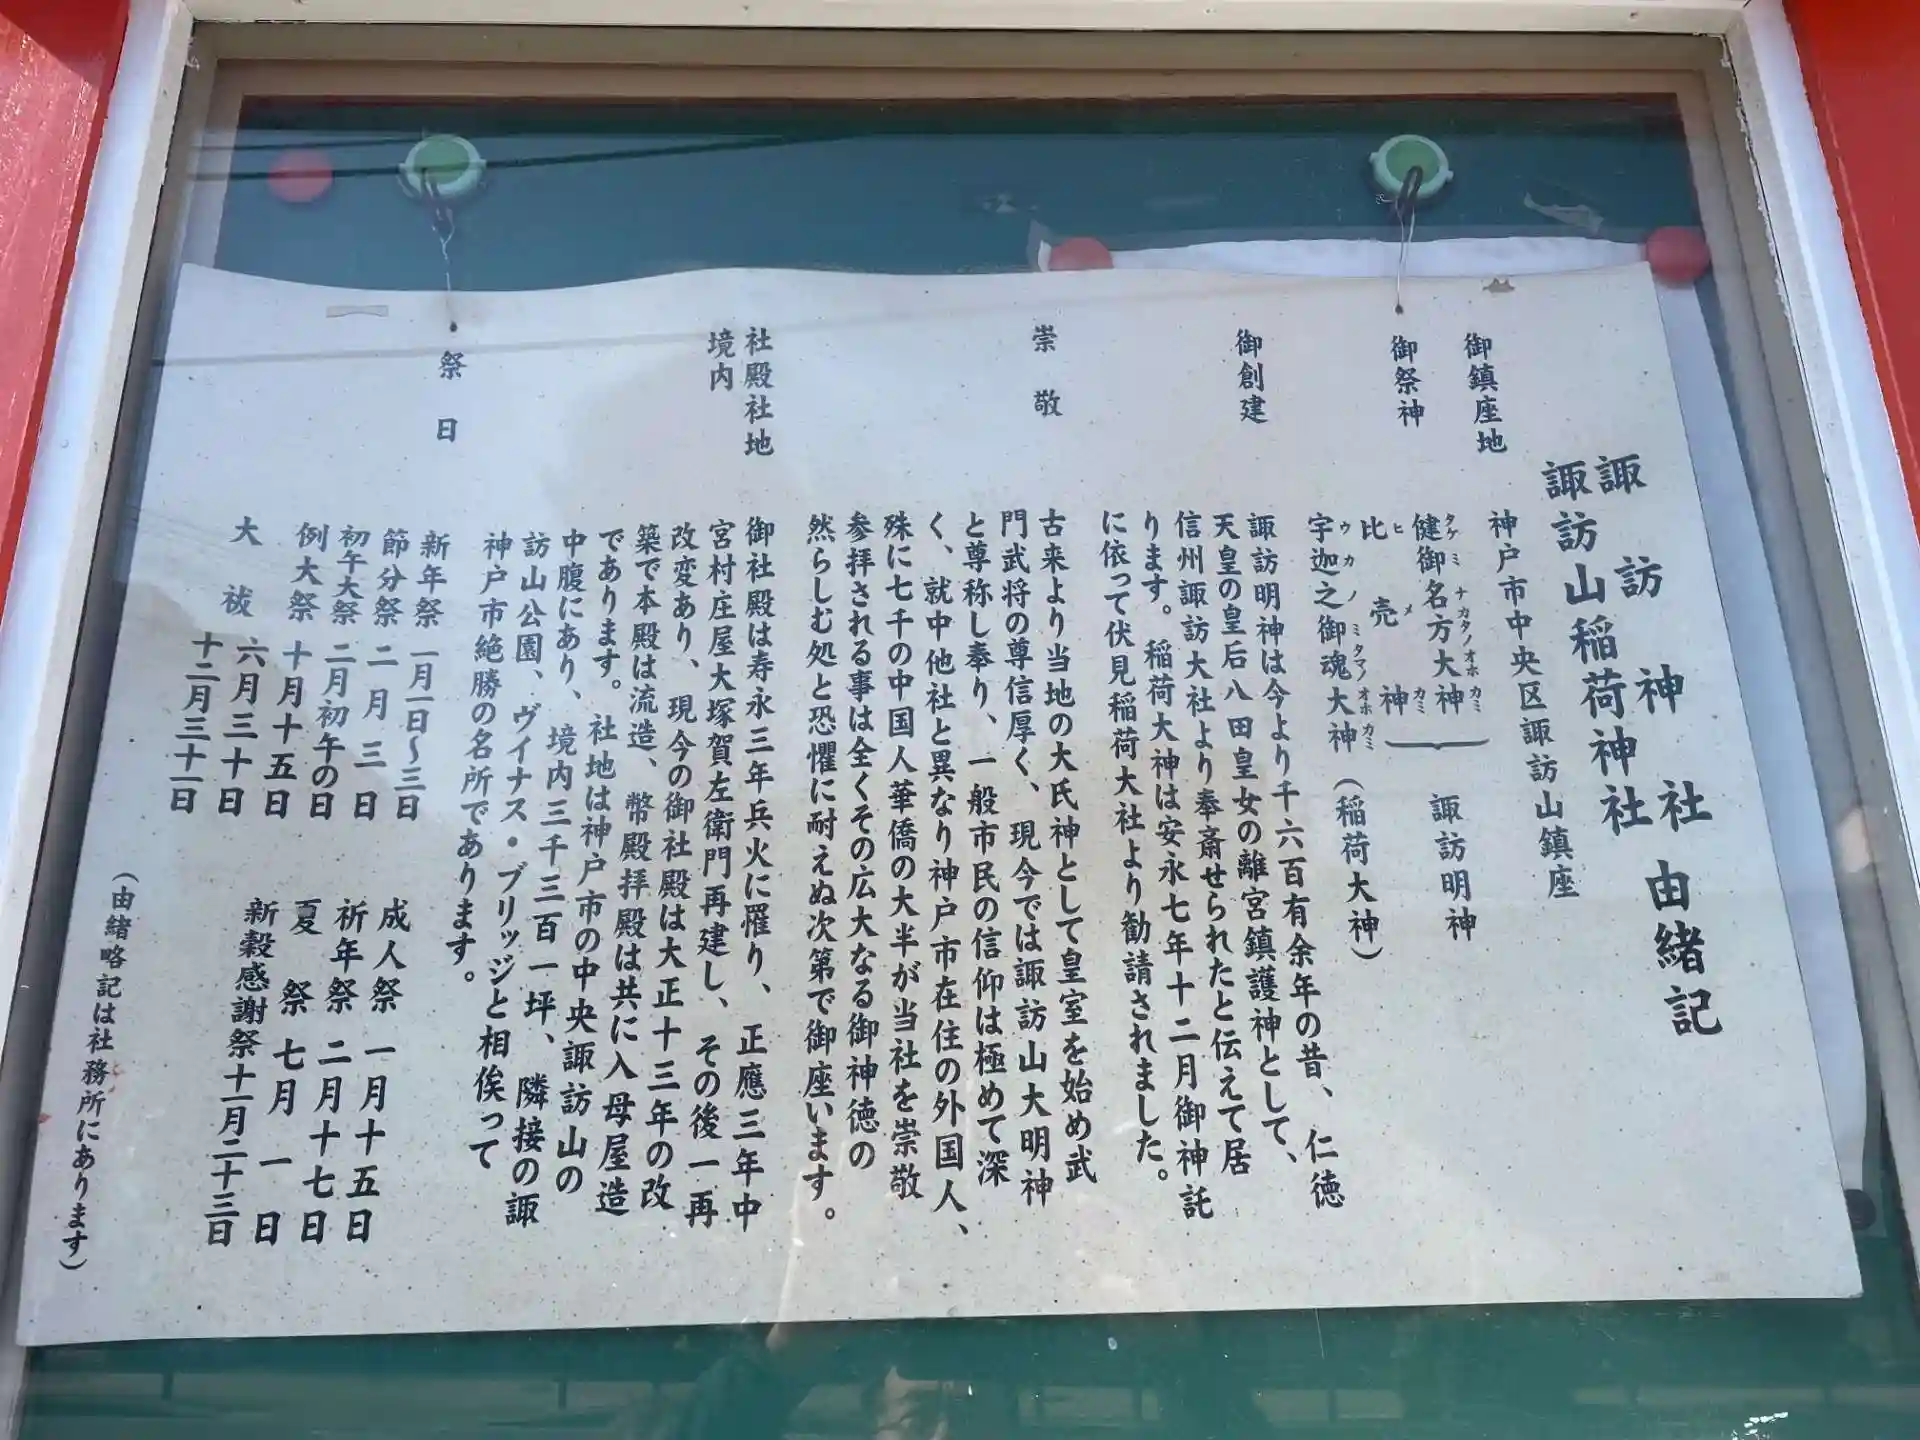 諏訪神社 由緒記
諏訪山稲荷神社
御鎮座地 神戸市中央区諏訪山鎮座
御祭神 健御名方大神 諏訪明神
タケミナカタノオホカミ
比売神
ヒメカミ
宇迦之御魂大神(稲荷大神)
ウカノミタマノオホカミ
御創建 諏訪明神は今より千六百有余年の昔、仁徳
天皇の皇后八田皇女の離宮鎮護神として、
信州諏訪大社より奉斎せられたと伝えて居
ります。稲荷大神は安永七年十二月御神託
に依って伏見稲荷大社より勧請されました。
崇敬 古来より当地の大氏神として皇室を始め武
門武将の尊信厚く、現今では諏訪山大明神
と尊称し奉り、一般市民の信仰は極めて深
く、就中他社と異なり神戸市在住の外国人、
殊に七千の中国人華僑の大半が当社を崇敬
参拝される事は全くその広大なる御神徳の
然らしむ処と恐懼に耐えぬ次第で御座います。
社殿社地 御社殿は寿永三年兵火に罹り、正應三年中
境内 宮村庄屋大塚賀左衛門再建し、その後一再
改変あり、現今の御社殿は大正十三年の改
築で本殿は流造、幣殿拝殿は共に入母屋造
であります。社地は神戸市の中央諏訪山の
中腹にあり、境内三千三百一坪、隣接の諏
訪山公園、ヴィナス・ブリッジと相俟って
神戸市絶勝の名所であります。
祭日 新年祭 一月一日〜三日 成人祭 一月十五日
節分祭 二月三日 祈年祭 二月十七日
初午大祭 二月初午の日 夏祭 七月一日
例大祭 十月十五日 新穀感謝祭 十一月二十三日
大祓 六月三十日
十二月三十一日
(由緒略記は社務所にあります)